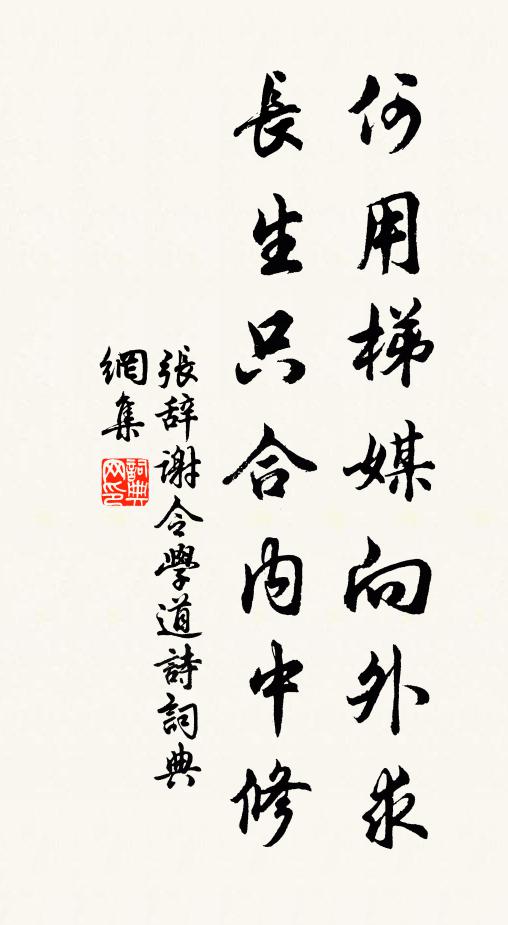 何用梯媒向外求
長生只合內中修
張辭謝令學道詩詞典
網集
詞典
网印